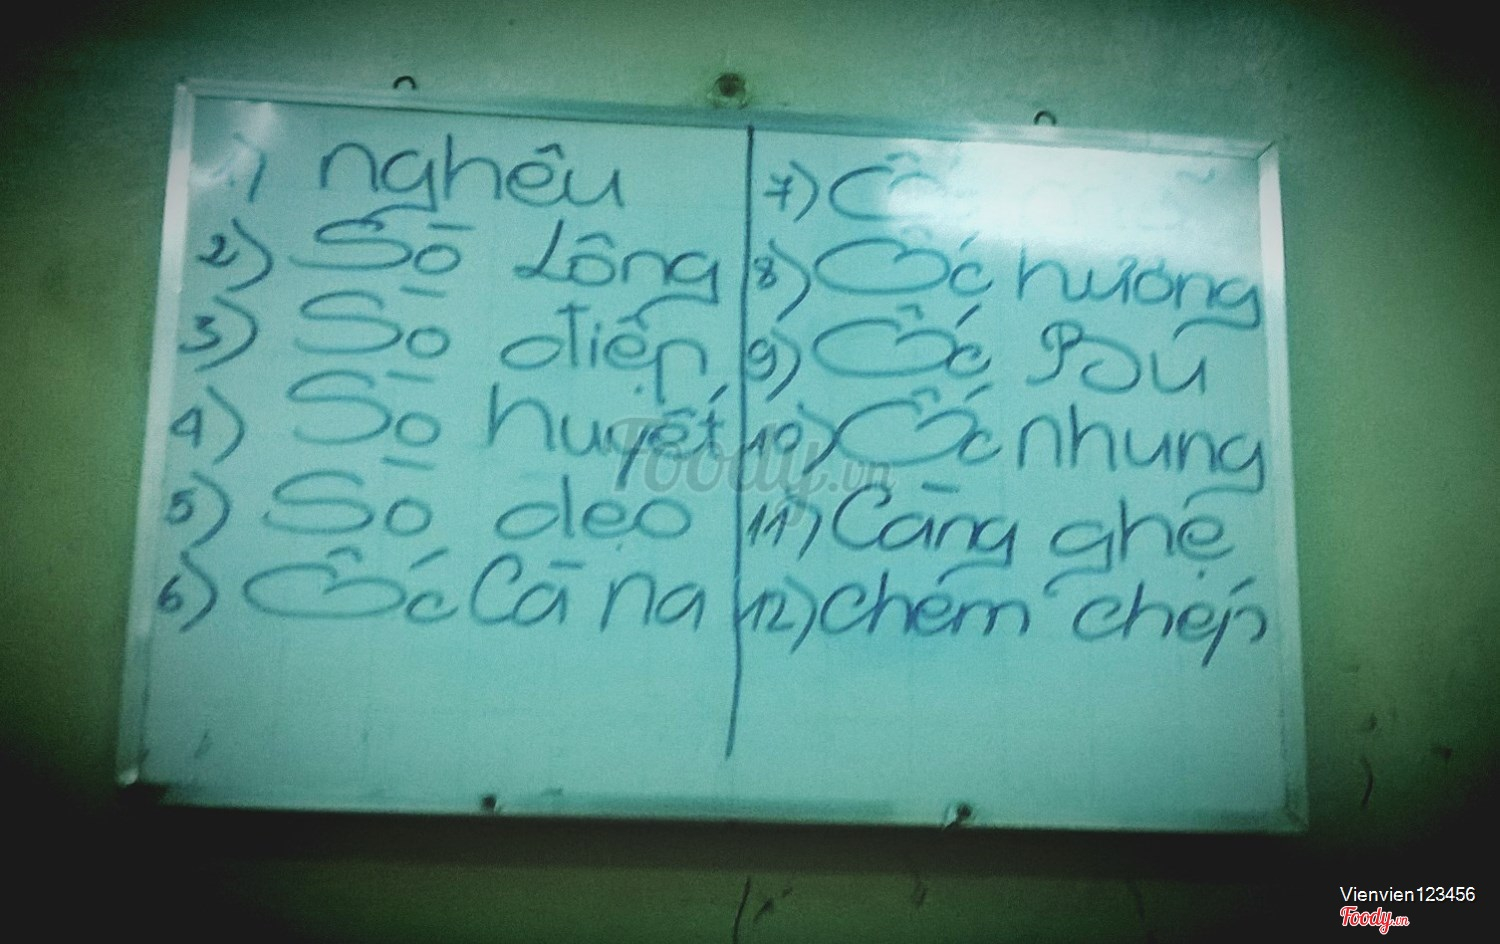 1) nghêu
2) Sò Lông
3) Sò điệp
4) Sò huyết
5) Sò dẹo
6) Ốc Cà na
7)
8) Ốc hương
9) Ốc Bưu
10) Ốc nhung
11) Càng ghẹ
12) chem chép
Foody.vn
Vienvien123456
Foody.vn